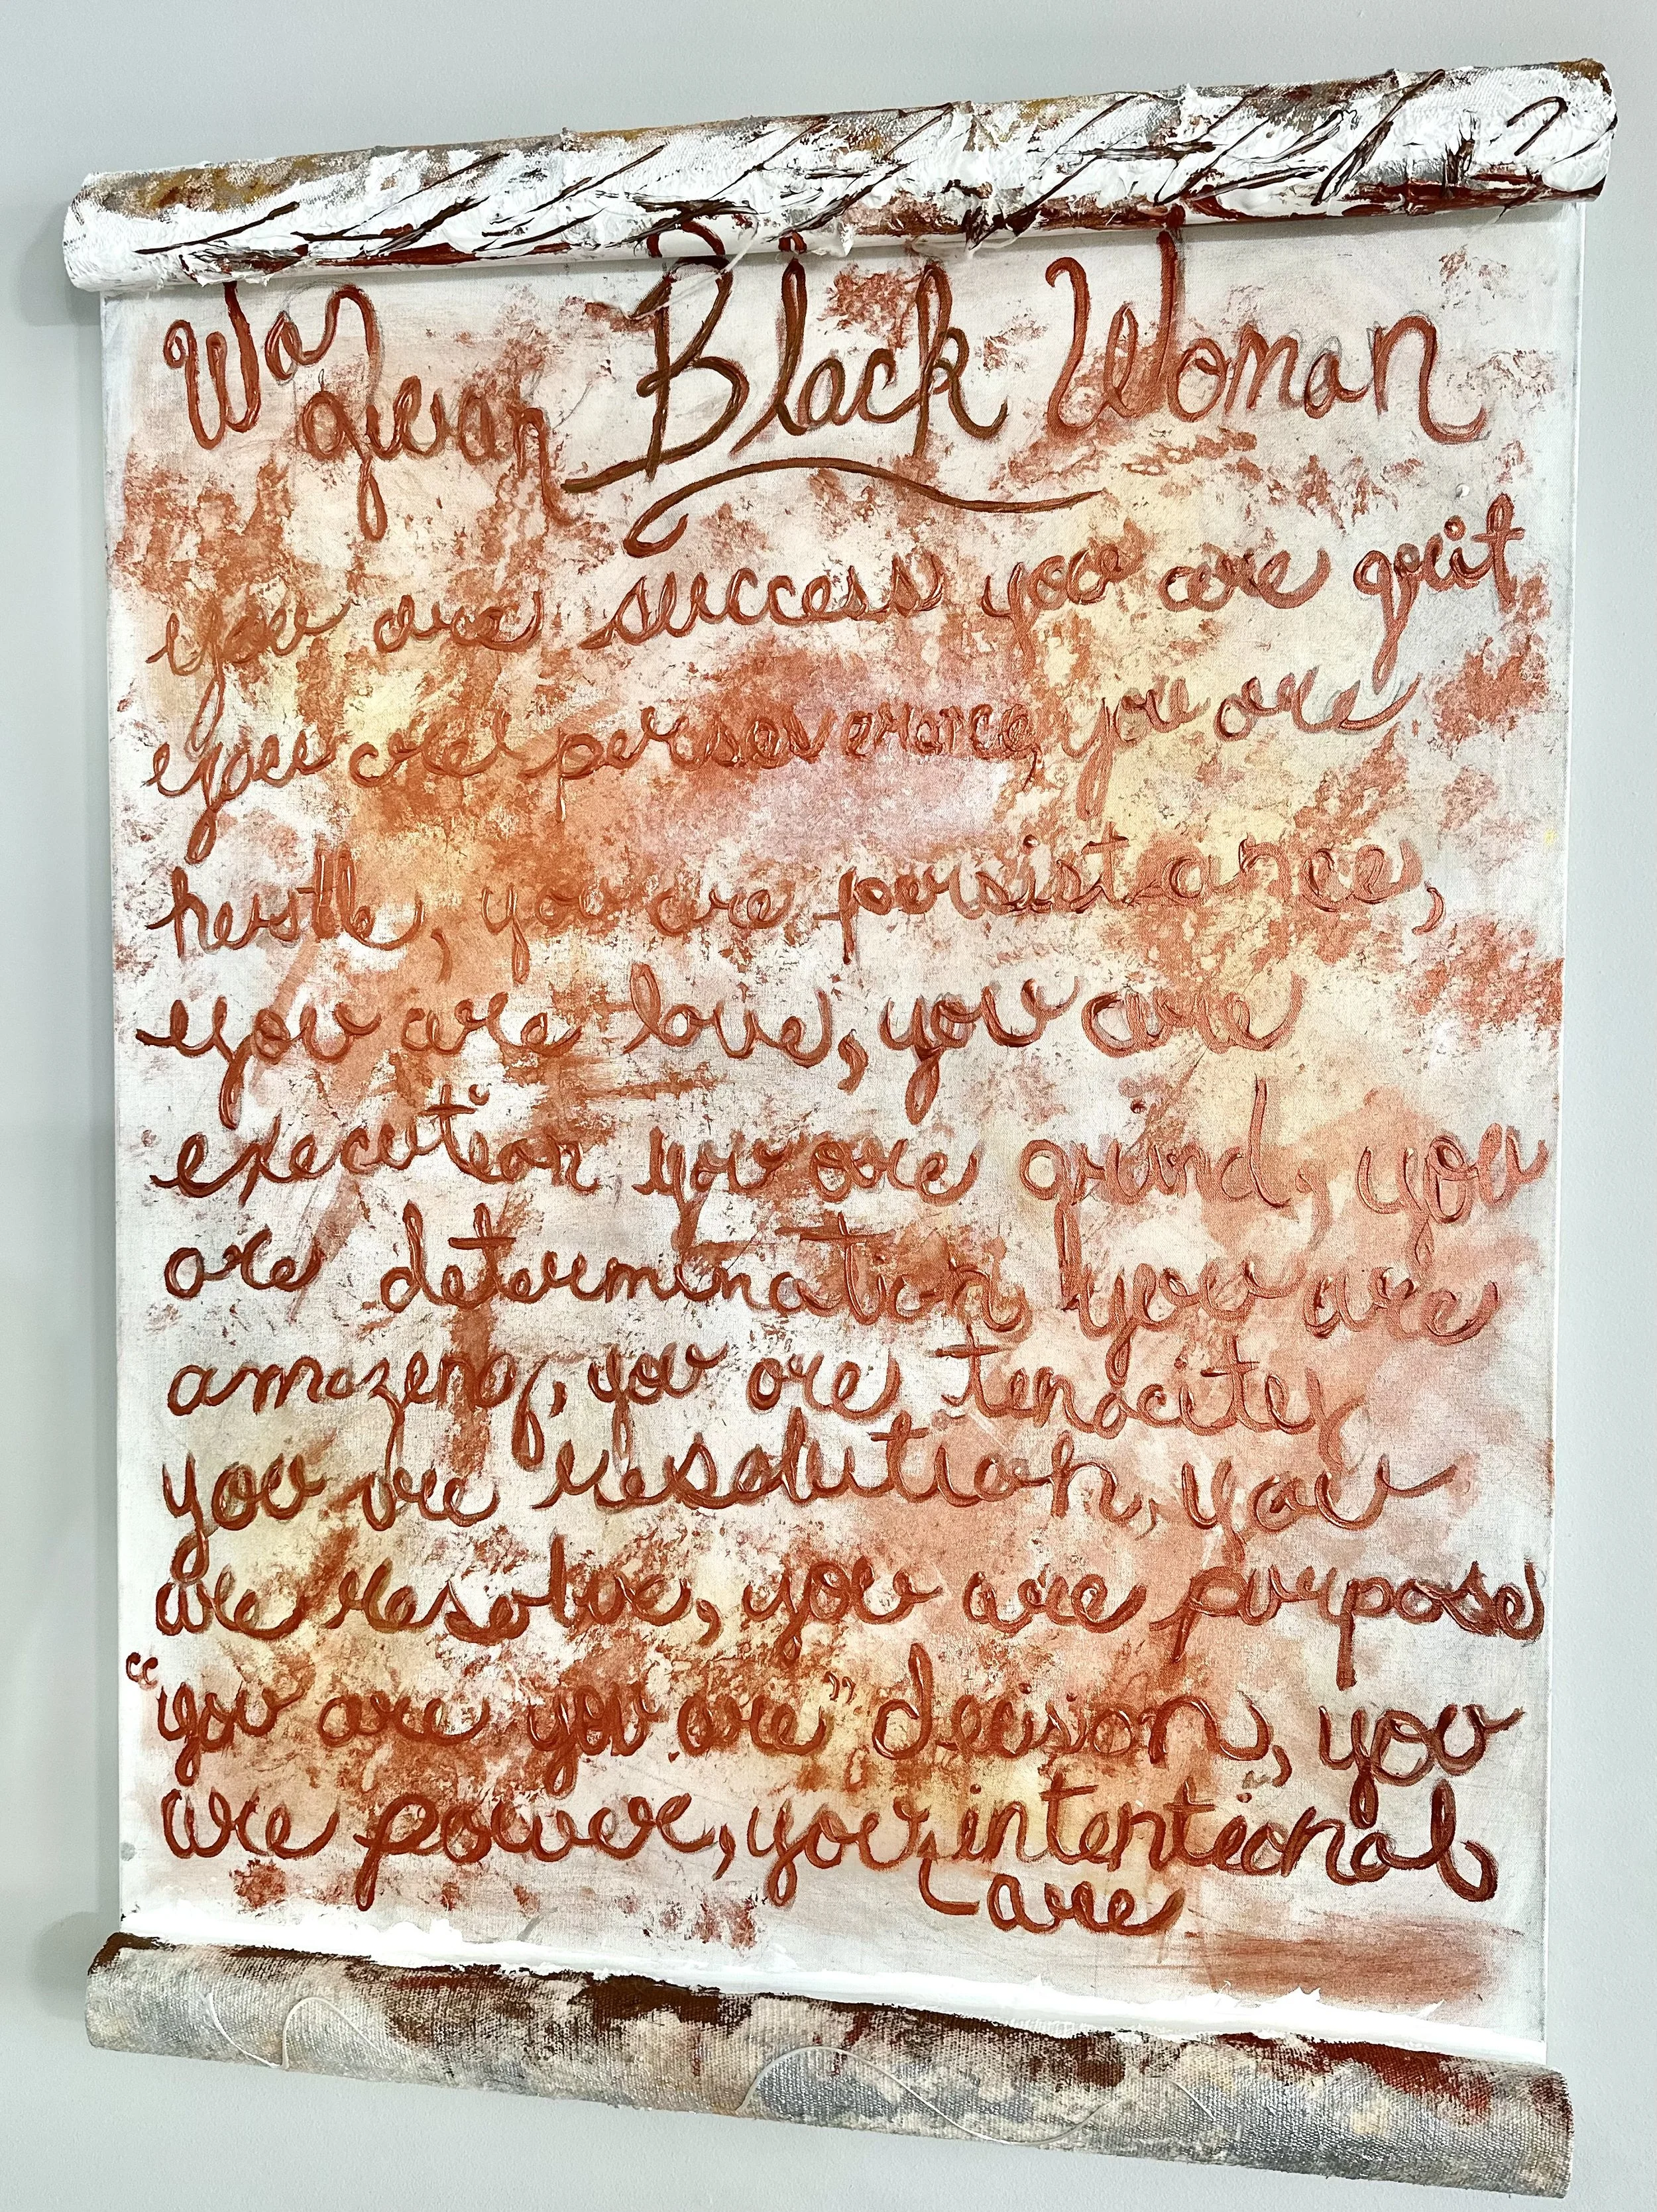 Wa gwan Black Woman
you are success you are grit,
you are perseverance, you are
hustle, you are persistance,
you are love, you are
execution you are grind, you
are determination, you are
amazing, you are tenacity
you are resolution, you
are resolve, you are purpose
“you are you are” decision, you
are power, you intentional
are